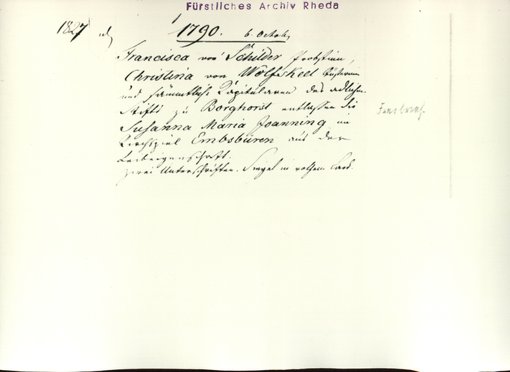 Fürstliches Archiv Rheda
1827
1790. 6 Octob.
Francisca von Schilder Probstinn,
Christina von Wolfskeel Küsterinn
und sämmtliche Capitularen des adlichen
Stifts zu Borghorst entlassen die
Susanna Maria Joanning im
Kirchspiel Embsbüren aus der
Leibeigenschaft.
zwei Unterschriften. Siegel in rothem Lack.